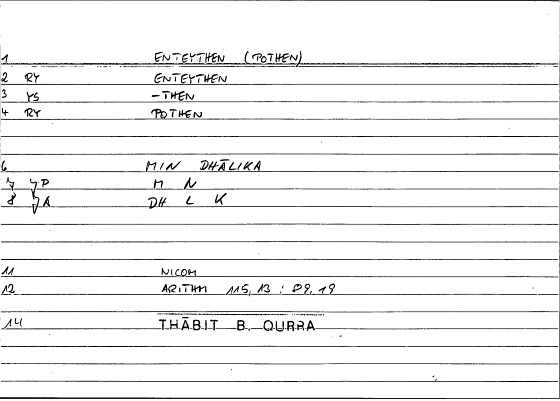 1 ENTEYTHEN (POTHEN)
2 RY ENTEYTHEN
3 YS -THEN
4 RY POTHEN
6 MIN DHĀLIKA
7 YP M N
8 YA DH L K
11 NICOM
12 ARITHM 115, 13 : 89, 19
14 THĀBIT B. QURRA